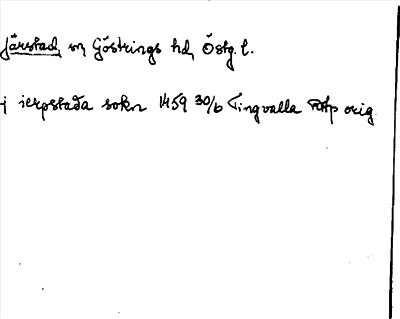 Järstad, sn Göstrings hd, Östg. l.
j ierpstada sokn 1459 30/6 Tingvalla RAp orig